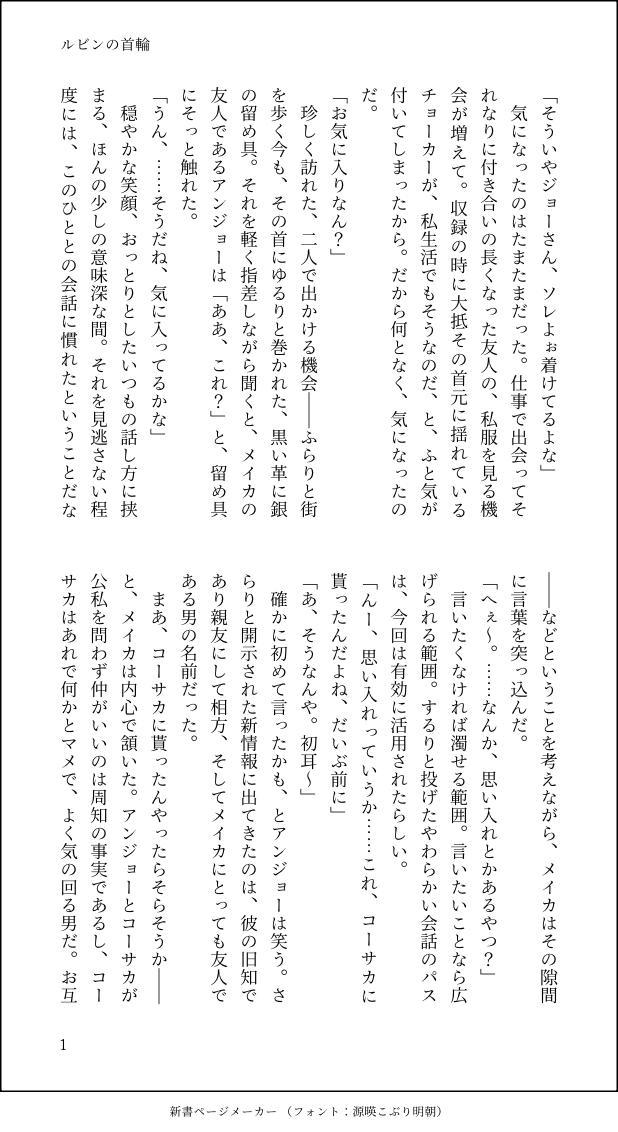 ルビンの首輪
「そういやジョーさん、ソレよぉ着けてるよな」
　気になったのはたまたまだった。仕事で出会ってそ
れなりに付き合いの長くなった友人の、私服を見る機
会が増えて。収録の時に大抵その首元に揺れている
チョーカーが、私生活でもそうなのだ、と、ふと気が
付いてしまったから。だから何となく、気になったの
だ。
「お気に入りなん？」
　珍しく訪れた、二人で出かける機会――ふらりと街
を歩く今も、その首にゆるりと巻かれた、黒い革に銀
の留め具。それを軽く指差しながら聞くと、メイカの
友人であるアンジョーは「ああ、これ？」と、留め具
にそっと触れた。
「うん、……そうだね、気に入ってるかな」
　穏やかな笑顔、おっとりとしたいつもの話し方に挟
まる、ほんの少しの意味深な間。それを見逃さない程
度には、このひととの会話に慣れたということだな
――などということを考えながら、メイカはその隙間
に言葉を突っ込んだ。
「へぇ～。……なんか、思い入れとかあるやつ？」
　言いたくなければ濁せる範囲。言いたいことなら広
げられる範囲。するりと投げたやわらかい会話のパス
は、今回は有効に活用されたらしい。
「んー、思い入れっていうか……これ、コーサカに
貰ったんだよね、だいぶ前に」
「あ、そうなんや。初耳～」
　確かに初めて言ったかも、とアンジョーは笑う。さ
らりと開示された新情報に出てきたのは、彼の旧知で
あり親友にして相方、そしてメイカにとっても友人で
ある男の名前だった。
　まあ、コーサカに貰ったんやったらそらそうか――
と、メイカは内心で頷いた。アンジョーとコーサカが
公私を問わず仲がいいのは周知の事実であるし、コー
サカはあれで何かとマメで、よく気の回る男だ。お互
1
新書ページメーカー（フォント：源暎こぶり明朝）